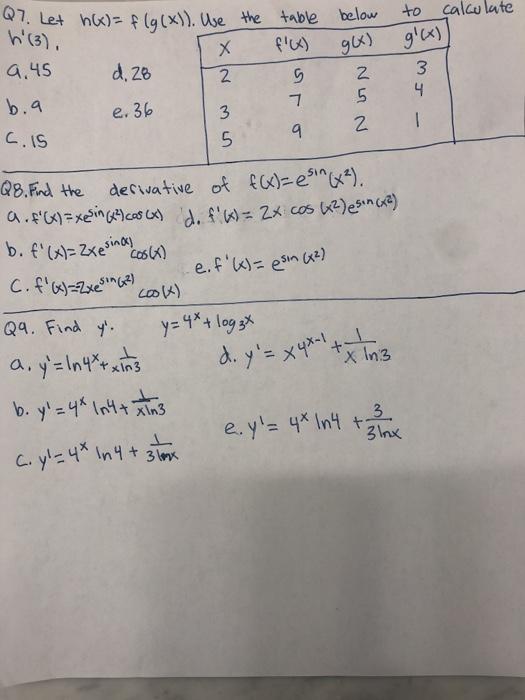 Q7. Let h(x) = f(g(x)). Use the table below to calculate
h'(3).
x f'(x) g(x) g'(x)
a. 45 d. 28
2 5 2 3
b. 9 e. 36
3 7 5 4
c. 15
5 9 2 1
Q8. Find the derivative of f(x)=e^sin(x²).
a. f'(x)=xe^sin(x²)cos(x) d. f'(x)= 2x cos(x²)e^sin(x²)
b. f'(x)=2xe^sin(x)cos(x) e. f'(x)= e^sin(x²)
c. f'(x)=2xe^sin(x²)cos(x)
Q9. Find y'. y=4^x + log₃x
a. y'=ln4^x + 1/(x ln3) d. y'= x4^(x-1) + 1/(x ln3)
b. y'=4^x ln4 + 1/(x ln3) e. y'= 4^x ln4 + 3/(3lnx)
c. y'=4^x ln4 + 1/(3lnx)